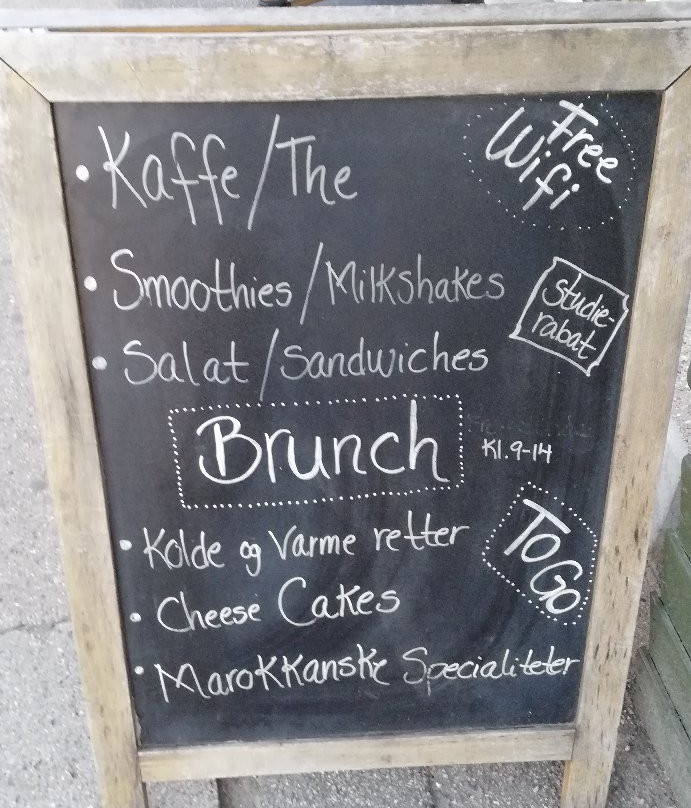 • Kaffe/The
Free
Wifi
• Smoothies/Milkshakes
Studie-
rabat
• Salat/Sandwiches
Brunch
Kl. 9-14
• Kolde og Varme retter
To Go
• Cheese Cakes
• Marokkanske Specialiteter